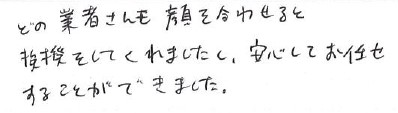 どの業者さんも顔を合わせると
挨拶をしてくれましたし、安心してお任せ
することができました。